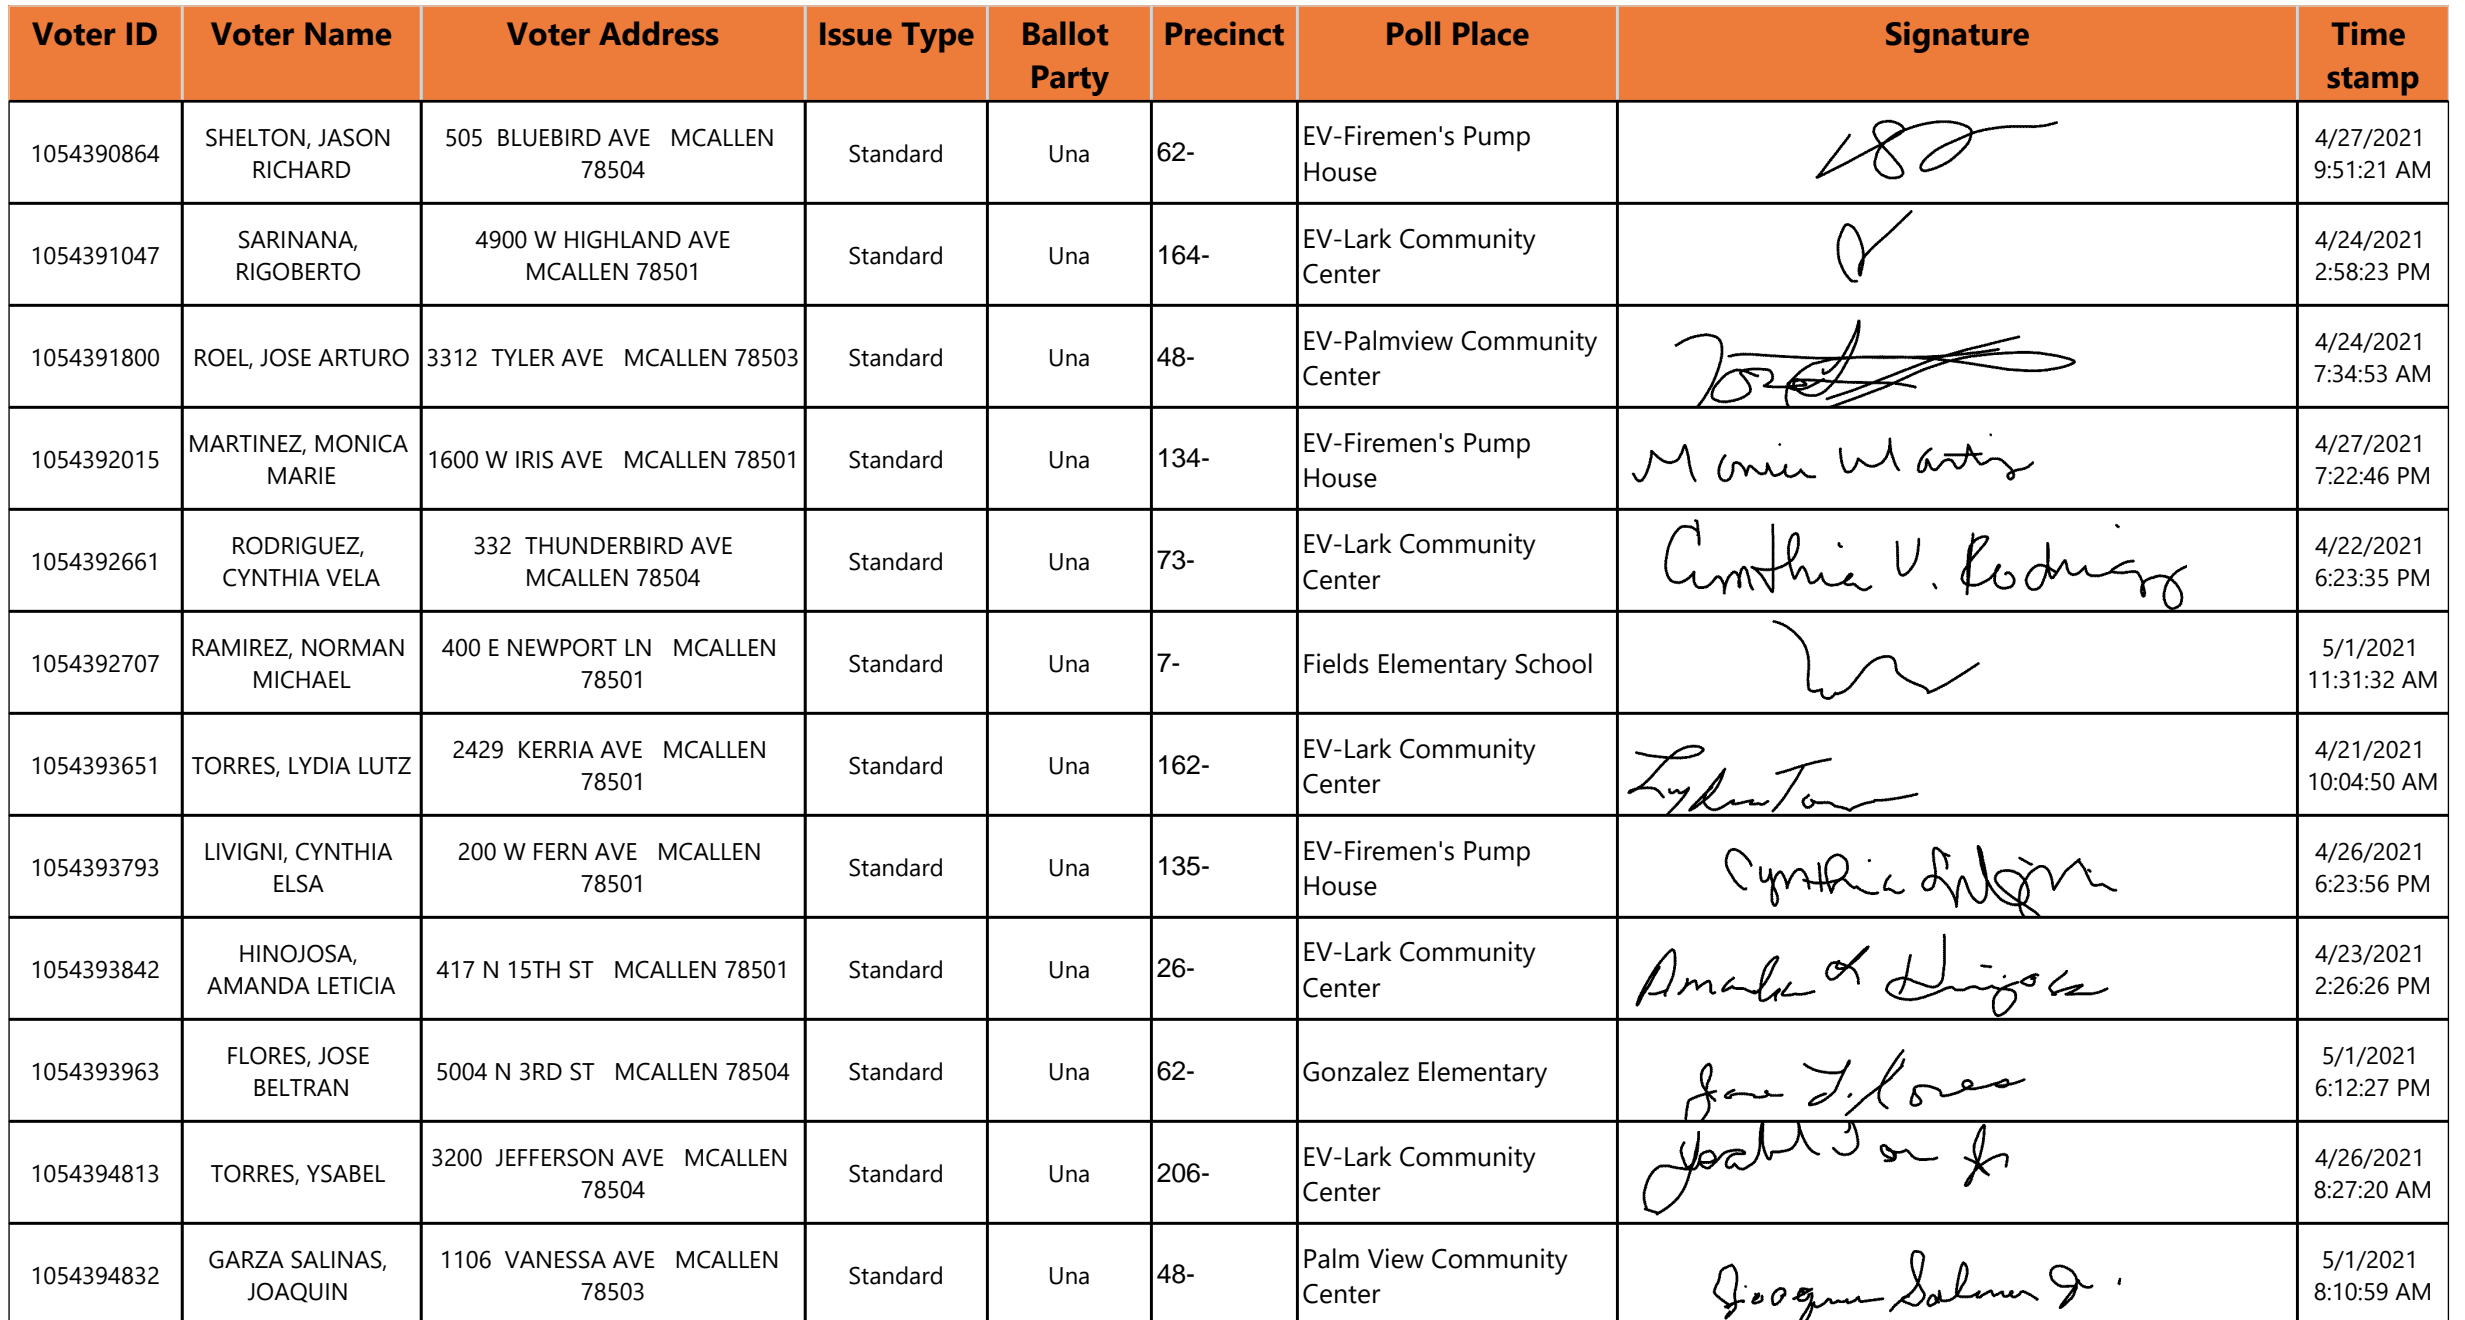 Voter ID Voter Name Voter Address Issue Type Ballot Party Precinct Poll Place Signature Time stamp
1054390864 SHELTON, JASON RICHARD 505 BLUEBIRD AVE MCALLEN 78504 Standard Una 62- EV-Firemen's Pump House 4/27/2021 9:51:21 AM
1054391047 SARINANA, RIGOBERTO 4900 W HIGHLAND AVE MCALLEN 78501 Standard Una 164- EV-Lark Community Center 4/24/2021 2:58:23 PM
1054391800 ROEL, JOSE ARTURO 3312 TYLER AVE MCALLEN 78503 Standard Una 48- EV-Palmview Community Center 4/24/2021 7:34:53 AM
1054392015 MARTINEZ, MONICA MARIE 1600 W IRIS AVE MCALLEN 78501 Standard Una 134- EV-Firemen's Pump House 4/27/2021 7:22:46 PM
1054392661 RODRIGUEZ, CYNTHIA VELA 332 THUNDERBIRD AVE MCALLEN 78504 Standard Una 73- EV-Lark Community Center Cynthia V. Rodriguez 4/22/2021 6:23:35 PM
1054392707 RAMIREZ, NORMAN MICHAEL 400 E NEWPORT LN MCALLEN 78501 Standard Una 7- Fields Elementary School 5/1/2021 11:31:32 AM
1054393651 TORRES, LYDIA LUTZ 2429 KERRIA AVE MCALLEN 78501 Standard Una 162- EV-Lark Community Center 4/21/2021 10:04:50 AM
1054393793 LIVIGNI, CYNTHIA ELSA 200 W FERN AVE MCALLEN 78501 Standard Una 135- EV-Firemen's Pump House Cynthia Livigni 4/26/2021 6:23:56 PM
1054393842 HINOJOSA, AMANDA LETICIA 417 N 15TH ST MCALLEN 78501 Standard Una 26- EV-Lark Community Center Amanda L Hinojosa 4/23/2021 2:26:26 PM
1054393963 FLORES, JOSE BELTRAN 5004 N 3RD ST MCALLEN 78504 Standard Una 62- Gonzalez Elementary 5/1/2021 6:12:27 PM
1054394813 TORRES, YSABEL 3200 JEFFERSON AVE MCALLEN 78504 Standard Una 206- EV-Lark Community Center 4/26/2021 8:27:20 AM
1054394832 GARZA SALINAS, JOAQUIN 1106 VANESSA AVE MCALLEN 78503 Standard Una 48- Palm View Community Center 5/1/2021 8:10:59 AM